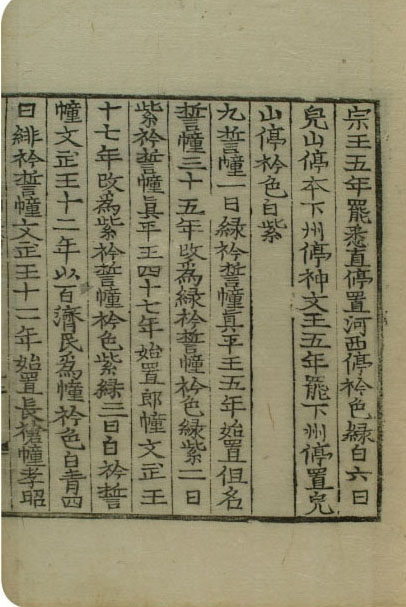 宗王五年罷悉直停置河西停衿色綠白六曰
完山停本下州停神文王五年罷下州停置完
山停衿色白紫
九誓幢一曰綠衿誓幢眞平王五年始置但名
誓幢三十五年改爲綠衿誓幢衿色綠紫二曰
紫衿誓幢眞平王四十七年始置郎幢文武王
十七年改爲紫衿誓幢衿色紫綠三曰白衿誓
幢文武王十二年以百濟民爲幢衿色白青四
曰緋衿誓幢文武王十二年始置長槍幢孝昭